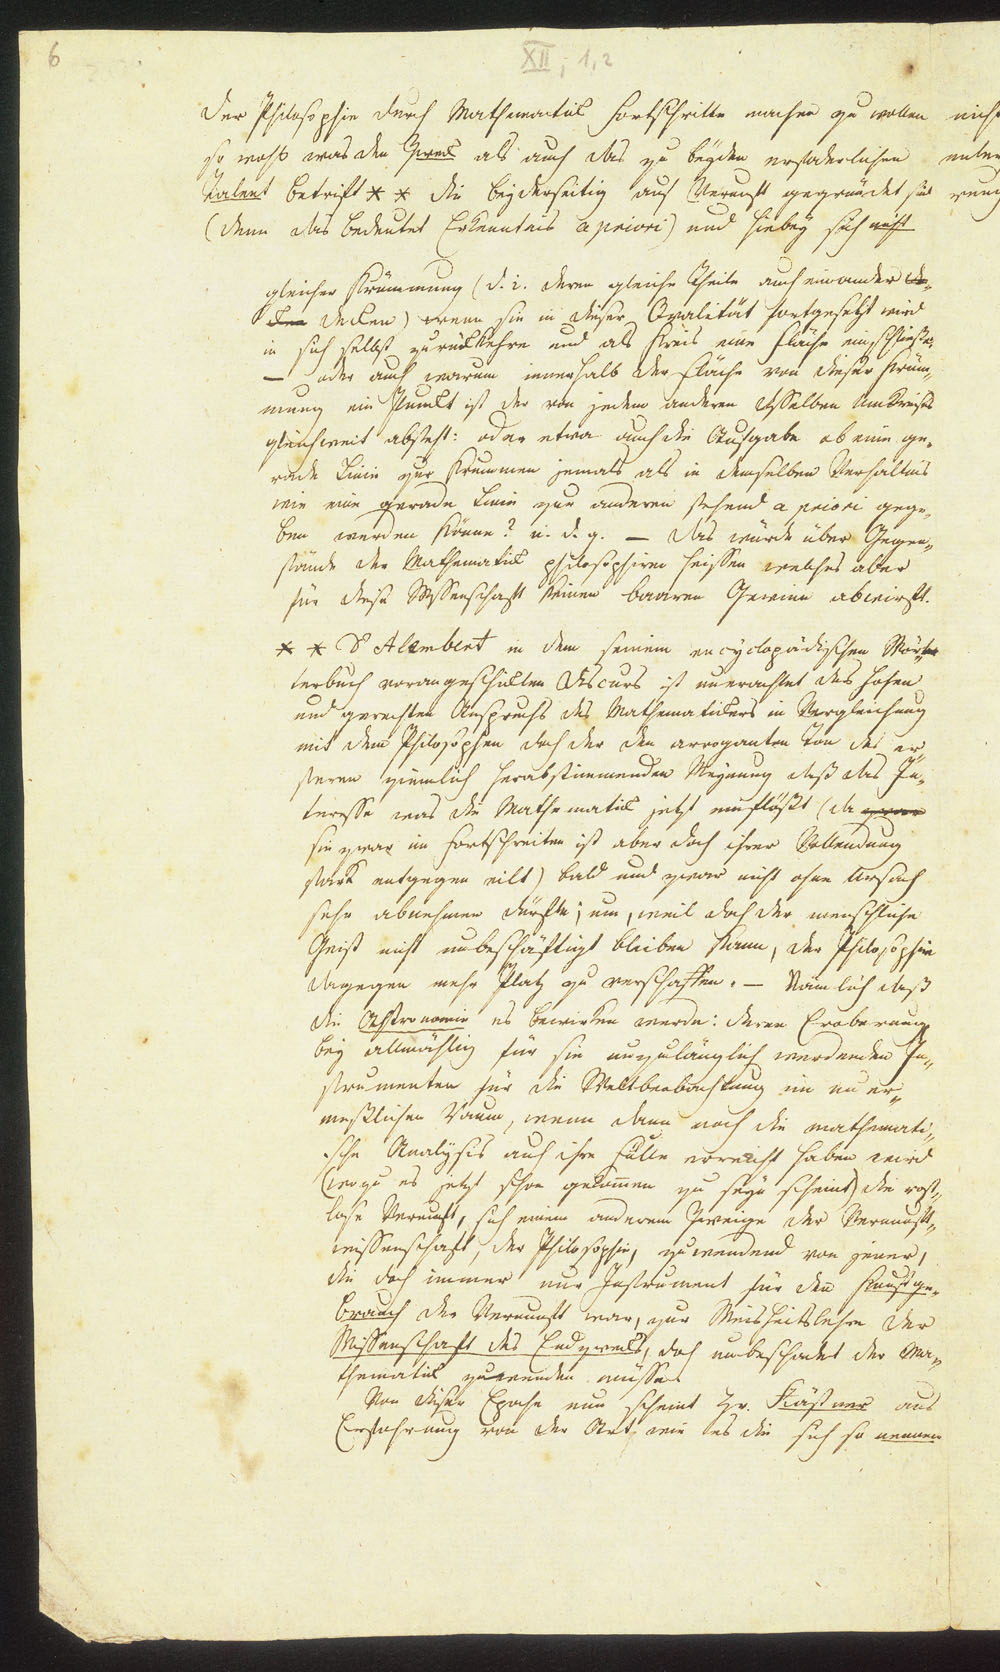 6
XII, 1,2
der Philosophie durch Mathematik Fortschritte machen zu wollen
so wohl was den Zweck als auch das zu beyden erfoderlichen
Talent betrift * * die beyderseitig auf Vernunft gegründet sind
(denn das bedeutet Erkentnis a priori) und hiebey sich nicht
gleicher Krümmung (d. i. deren gleiche Theile auf einander de¬
cken decken) wenn sie in dieser Qvalität fortgesetzt wird
in sich selbst zurückkehre und als Kreis eine Fläche einschließe,
— oder auch warum innerhalb der Fläche von dieser Krüm¬
mung ein Punkt ist der von jedem anderen desselben Umkreises
gleichweit absteht: oder etwa auch die Aufgabe ob eine ge¬
rade Linie zur Krummen jemals als in demselben Verhältnis
wie eine gerade Linie zur anderen stehend a priori gege¬
ben werden könne? u. d. g. — das würde über Gegen¬
stände der Mathematik philosophiren heissen welches aber
für diese Wissenschaft keinen baaren Gewinn abwirft.
* * D'Alembert in dem seinem encyclopädischen Wör¬
terbuch vorangeschickten Discurs ist unerachtet des hohen
und gerechten Anspruchs des Mathematikers in Vergleichung
mit dem Philosophen doch der den arroganten Ton des er¬
steren ziemlich herabstimmenden Meynung daß das In¬
teresse was die Mathematik jetzt einflößt (da zwar
sie zwar im Fortschreiten ist aber doch ihrer Vollendung
stark entgegen eilt) bald und zwar nicht ohne Ursach
sehr abnehmen dürfte; um, weil doch der menschliche
Geist nicht unbeschäftigt bleiben kann, der Philosophie
dagegen mehr Platz zu verschaffen. — Nämlich daß
die Astronomie es bewirken werde: deren Eroberung
bey allmählig für sie unzulänglich werdenden In¬
strumenten für die Weltbeobachtung im uner¬
meßlichen Raum, wenn dann noch die mathemati¬
sche Analysis auch ihre Fülle erreicht haben wird
(wozu es jetzt schon gekommen zu seyn scheint) die rast¬
lose Vernunft, sich einem anderem Zweige der Vernunft¬
wissenschaft, der Philosophie, zuwendend von jener,
die doch immer nur Instrument für den Kunstge¬
brauch der Vernunft war, zur Weisheitslehre der
Wissenschaft des Endzwecks, doch unbeschadet der Ma¬
thematik zuwenden müsse
Von dieser Epoche nun scheint Hr. Kästner aus
Erfahrung von der Art wie es die sich so nennen